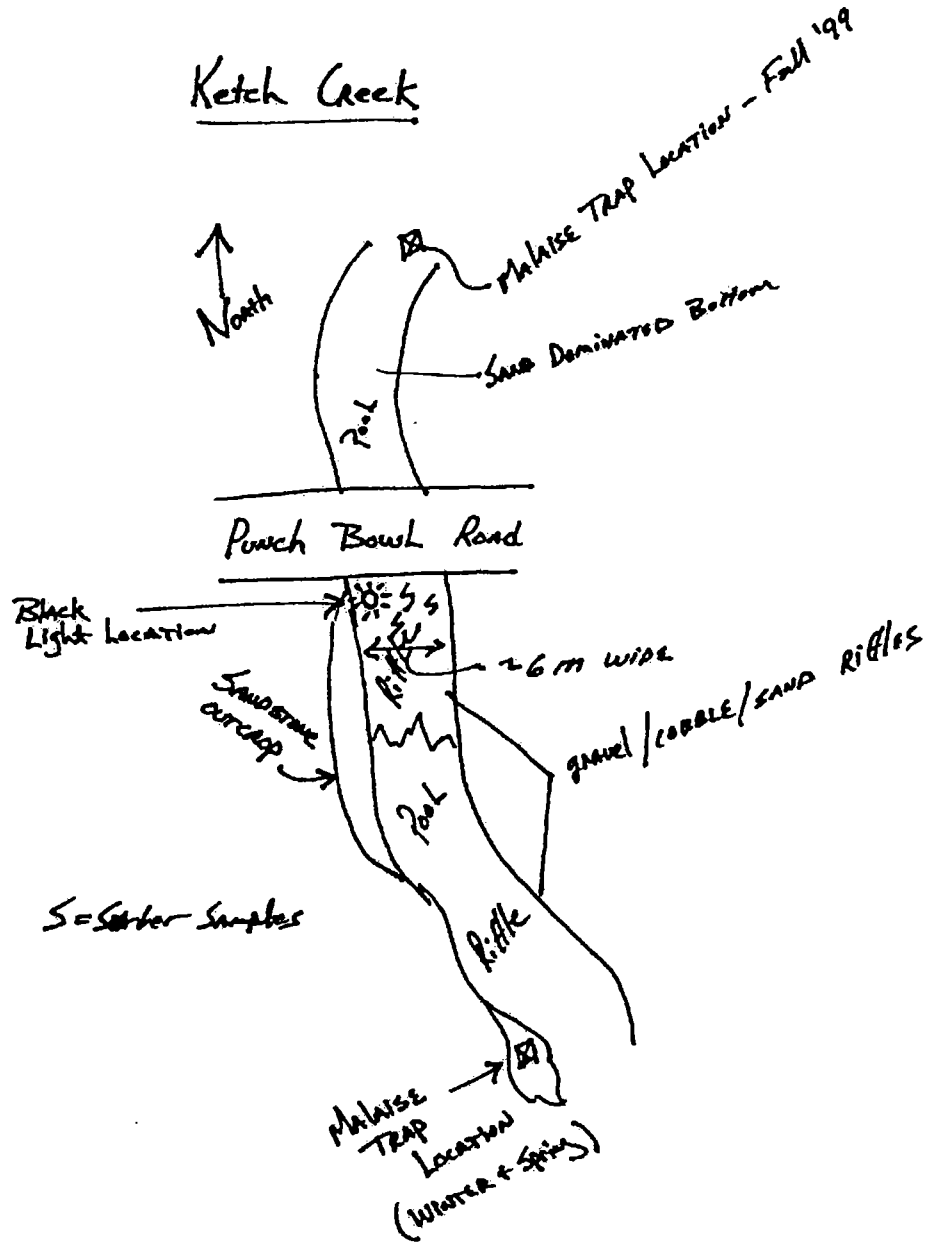 Ketch Creek
Malaise Trap Location - Fall '99
North
Sand Dominated Bottom
Pool
Punch Bowl Road
Black
Light Location
S S
S
S
Riffle
~6 m wide
Sandstone
outcrop
gravel/cobble/sand Riffles
Pool
S = Surber Samples
Riffle
Malaise
Trap
Location
(Winter + Spring)